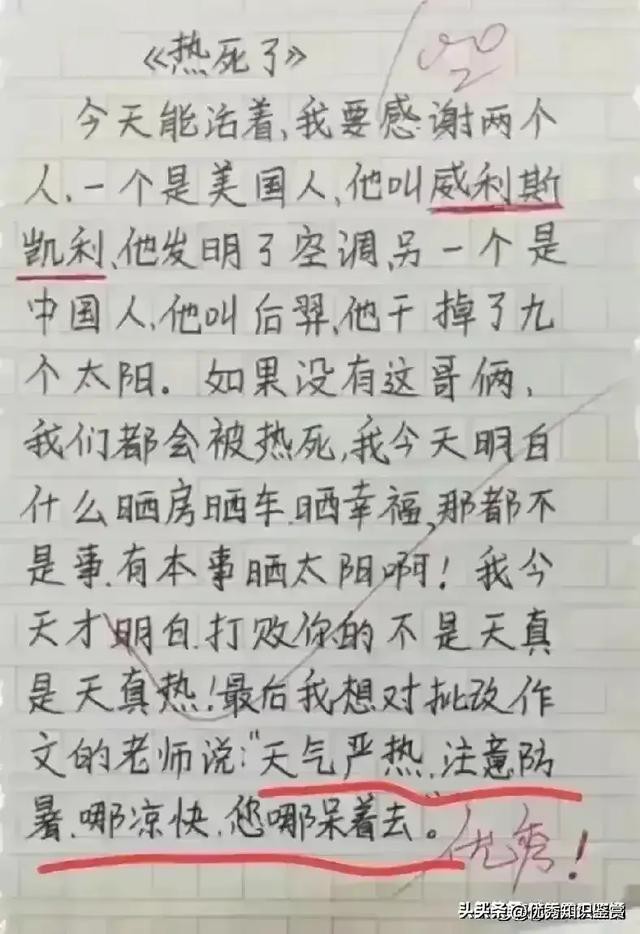 《热死了》
今天能活着,我要感谢两个
人、一个是美国人,他叫威利斯
凯利、他发明了空调,另一个是
中国人、他叫后羿、他干掉了九
个太阳。如果没有这哥俩,
我们都会被热死,我今天明白
什么晒房晒车、晒幸福、那都不
是事、有本事晒太阳啊!我今
天才明白、打败你的不是天真
是天真热!最后我想对批改作
文的老师说:"天气严热、注意防
暑、哪凉快、您哪呆着去"。
优秀!
头条 @优秀知识鉴赏